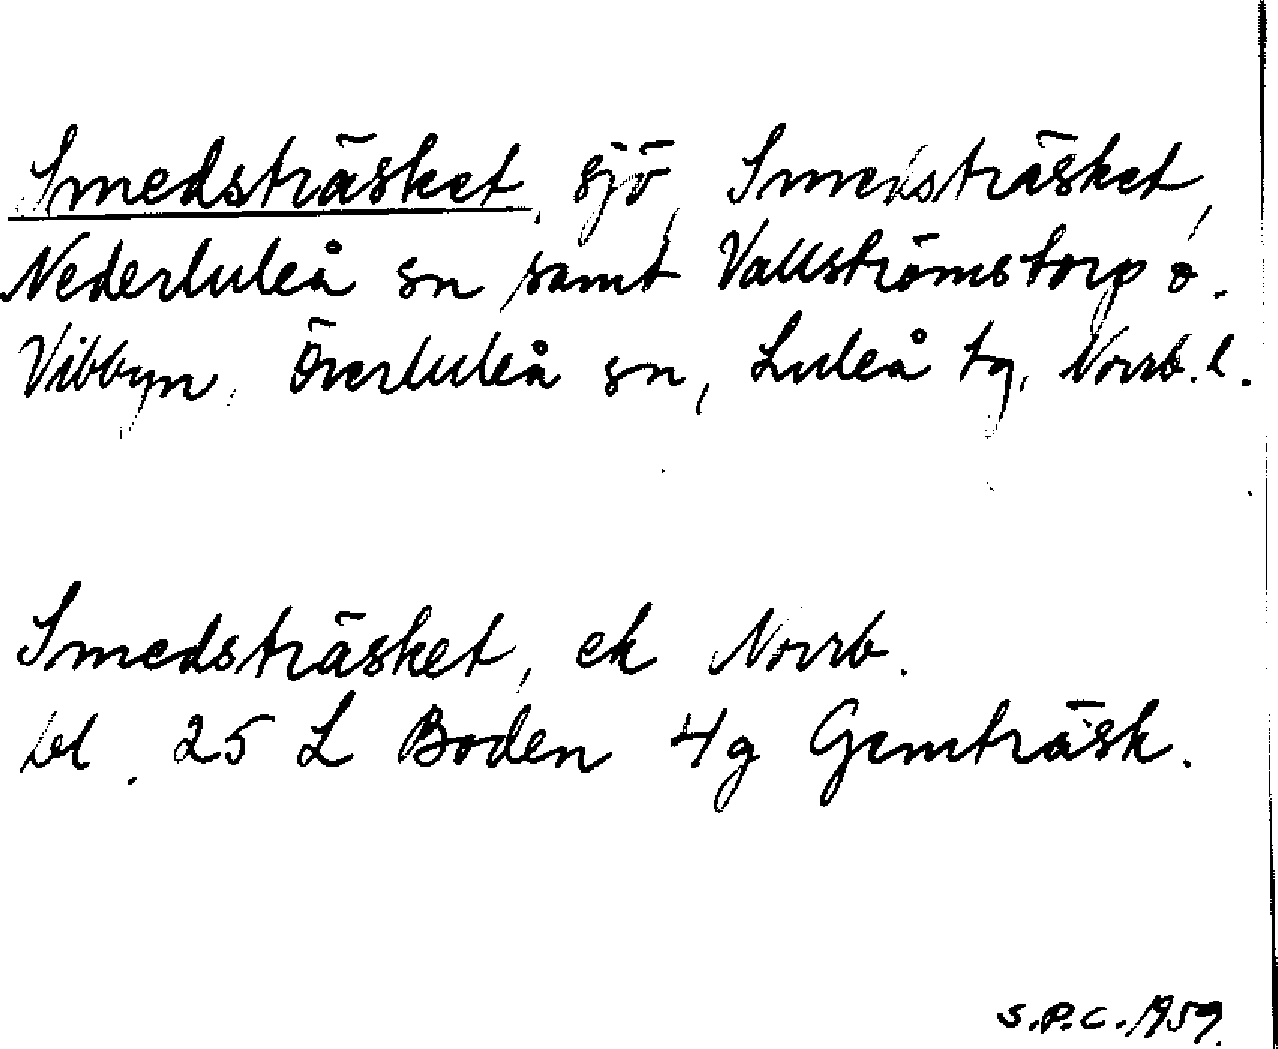 Smedsträsket, sjö, Smedsträsket,
Nederluleå sn samt Vallströmstorp o.
Vibbyn, Överluleå sn, Luleå tg, Norrb. l.
Smedsträsket, ek Norrb.
bl. 25 L Boden 4g Gemträsk.
S.P.C. 1959.